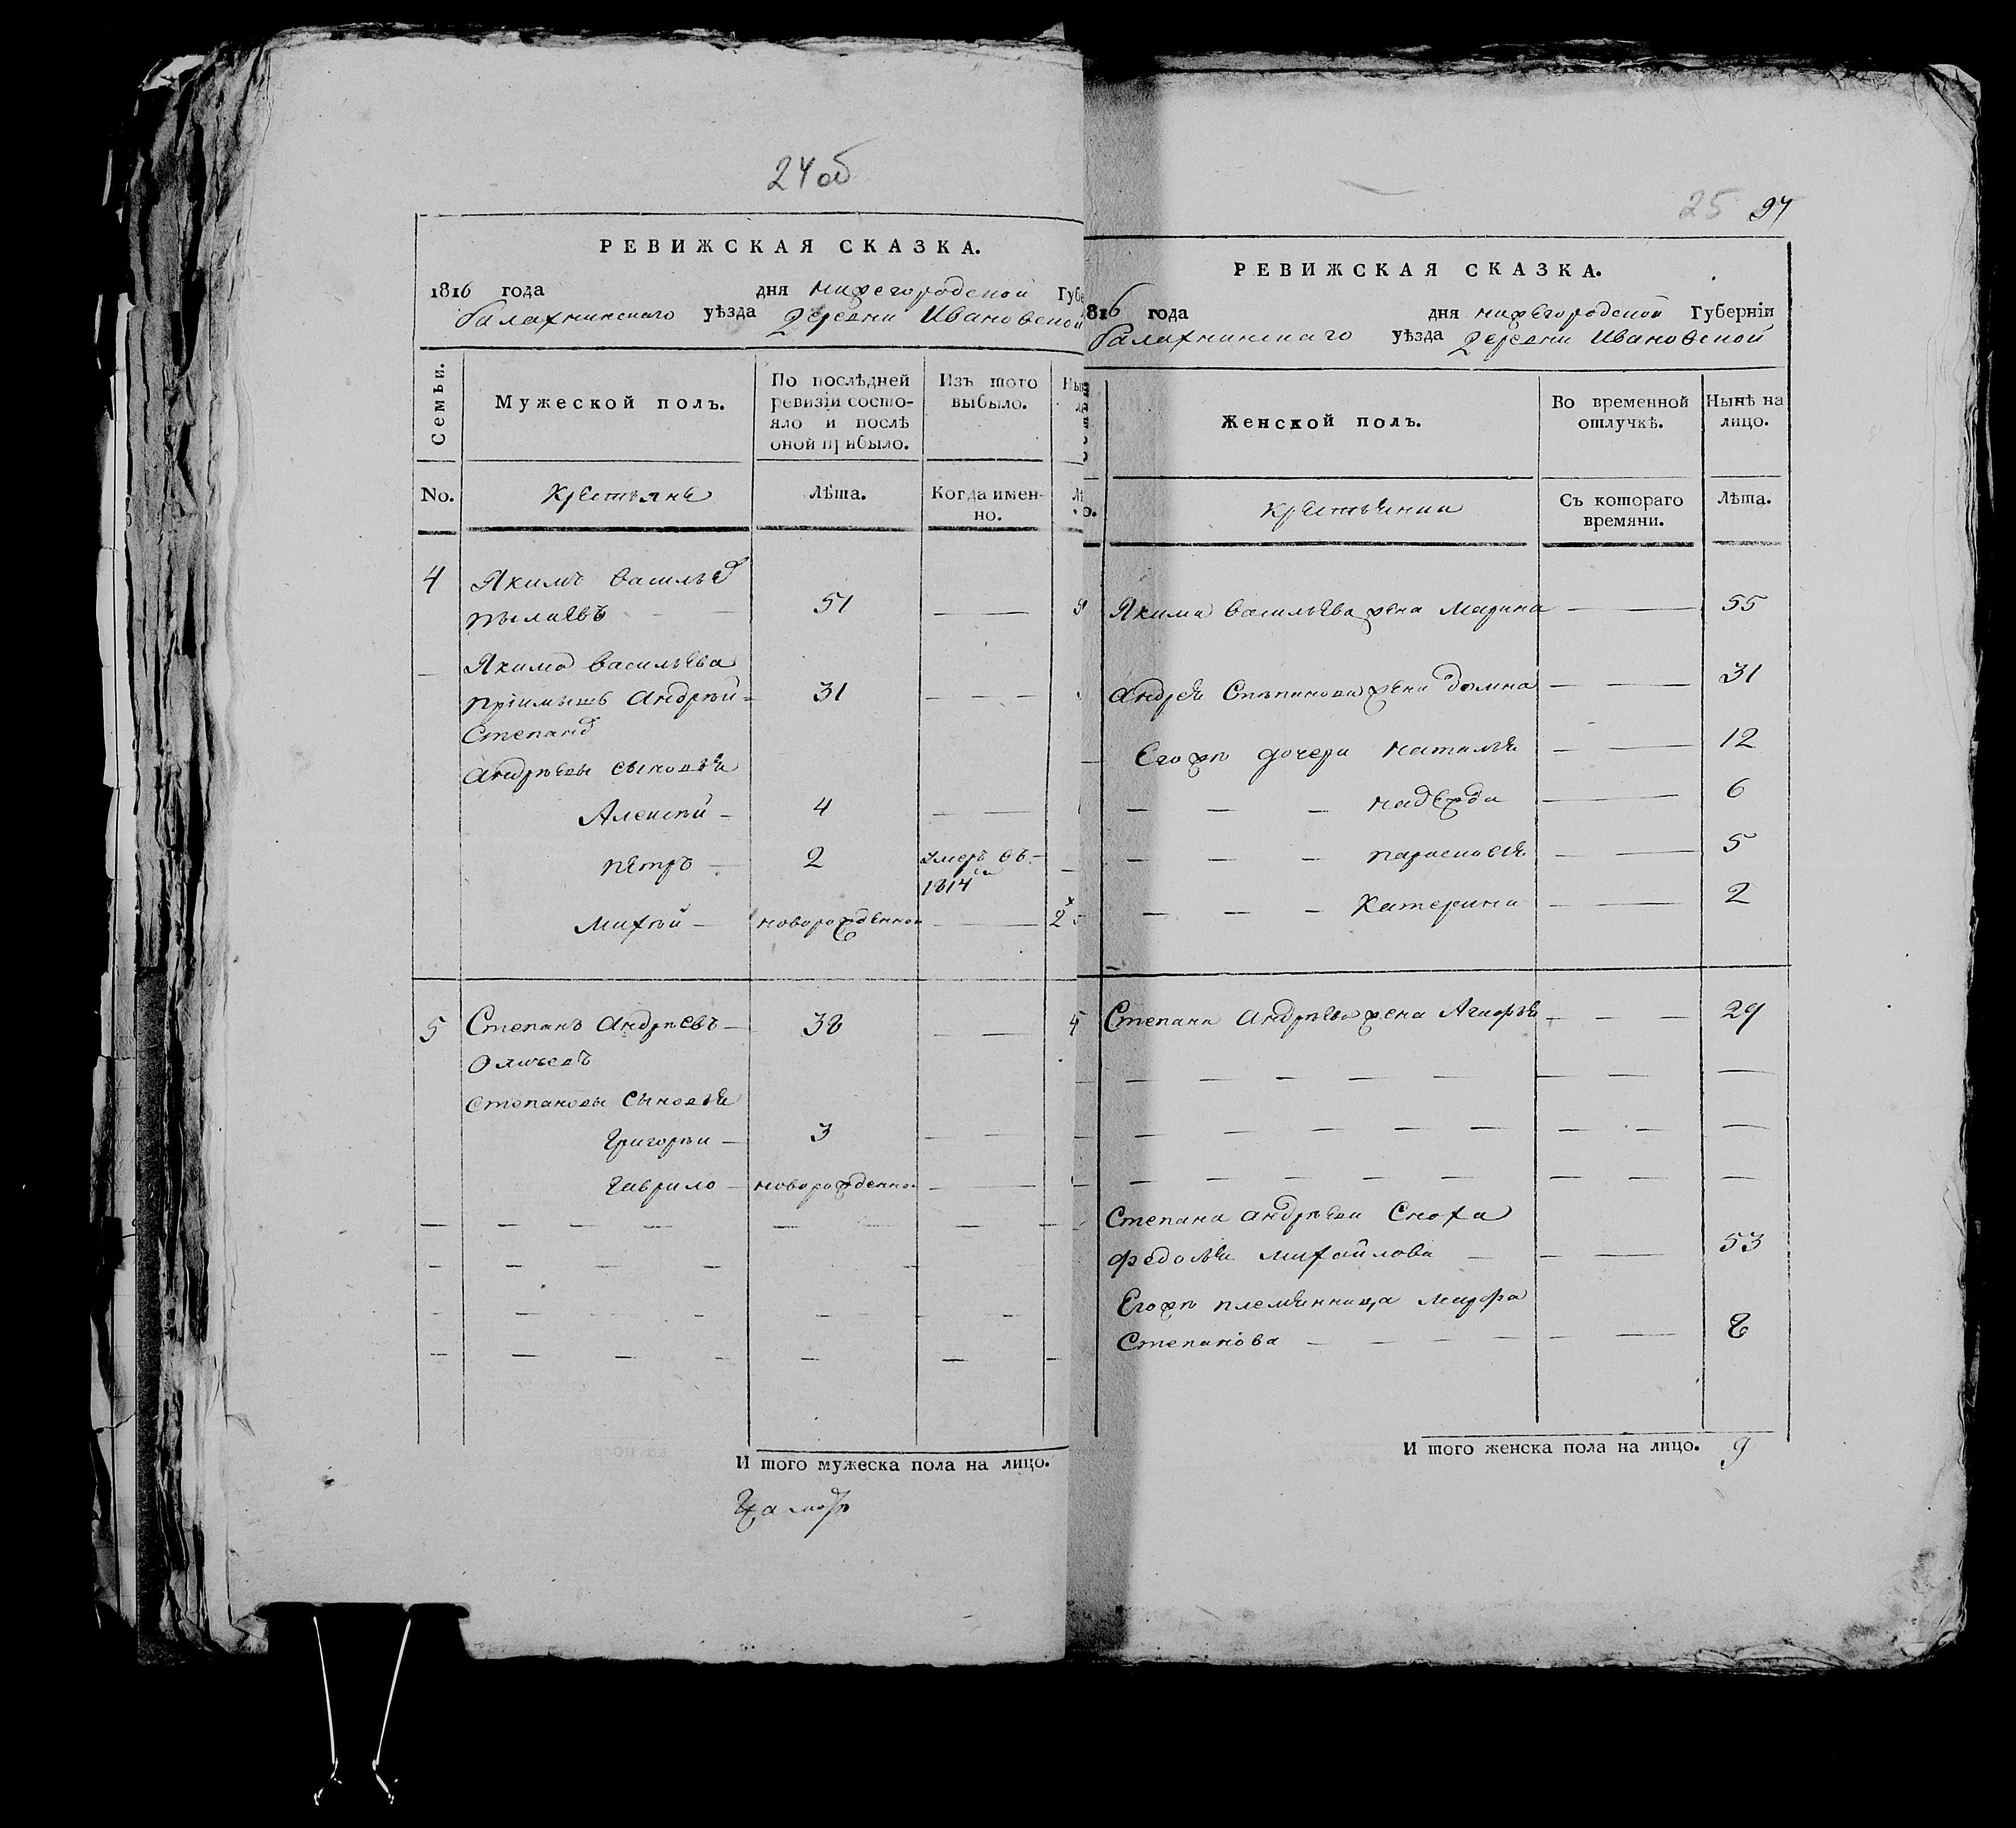 24об
РЕВИЖСКАЯ СКАЗКА.
1816 года дня нижегородской Губе
балахнинскаго уѣзда деревни Ивановской
Семьи.
Мужеской полъ.
По послѣдней ревизіи состо-
яло и послѣ оной прибыло.
Изъ того выбыло.
No.
Крестьяне
Лѣта.
Когда имен-
но.
4 Якимъ Васильевъ
51
Якима Васильева
пріимышъ Андрей 31
Степановъ
Андрѣевы сыновья
Алексѣй 4
петръ 2 умеръ въ
1814м
Михѣй новорожденной 2
5 Степанъ Андрѣевъ 38
Степановы Сыновья
Григорьи 3
Гаврило новорожденно
И того мужеска пола на лицо.
25 97
РЕВИЖСКАЯ СКАЗКА.
816 года дня нижегородской Губерніи
балахнинскаго уѣзда деревни Ивановской
Женской полъ.
Во временной отлучкѣ.
Нынѣ на лицо.
Съ котораго
времяни.
Лѣта.
Якима Васильева жена Марина 55
Андрея Степанова жена домна 31
Егожъ дочери наталья 12
надежда 6
парасковья 5
Катерина 2
Степана Андрѣева жена 29
Степана Андрѣева Сноха
федосья михайлова 53
Егожъ племянница марфа
Степанова 8
И того женска пола на лицо. 9